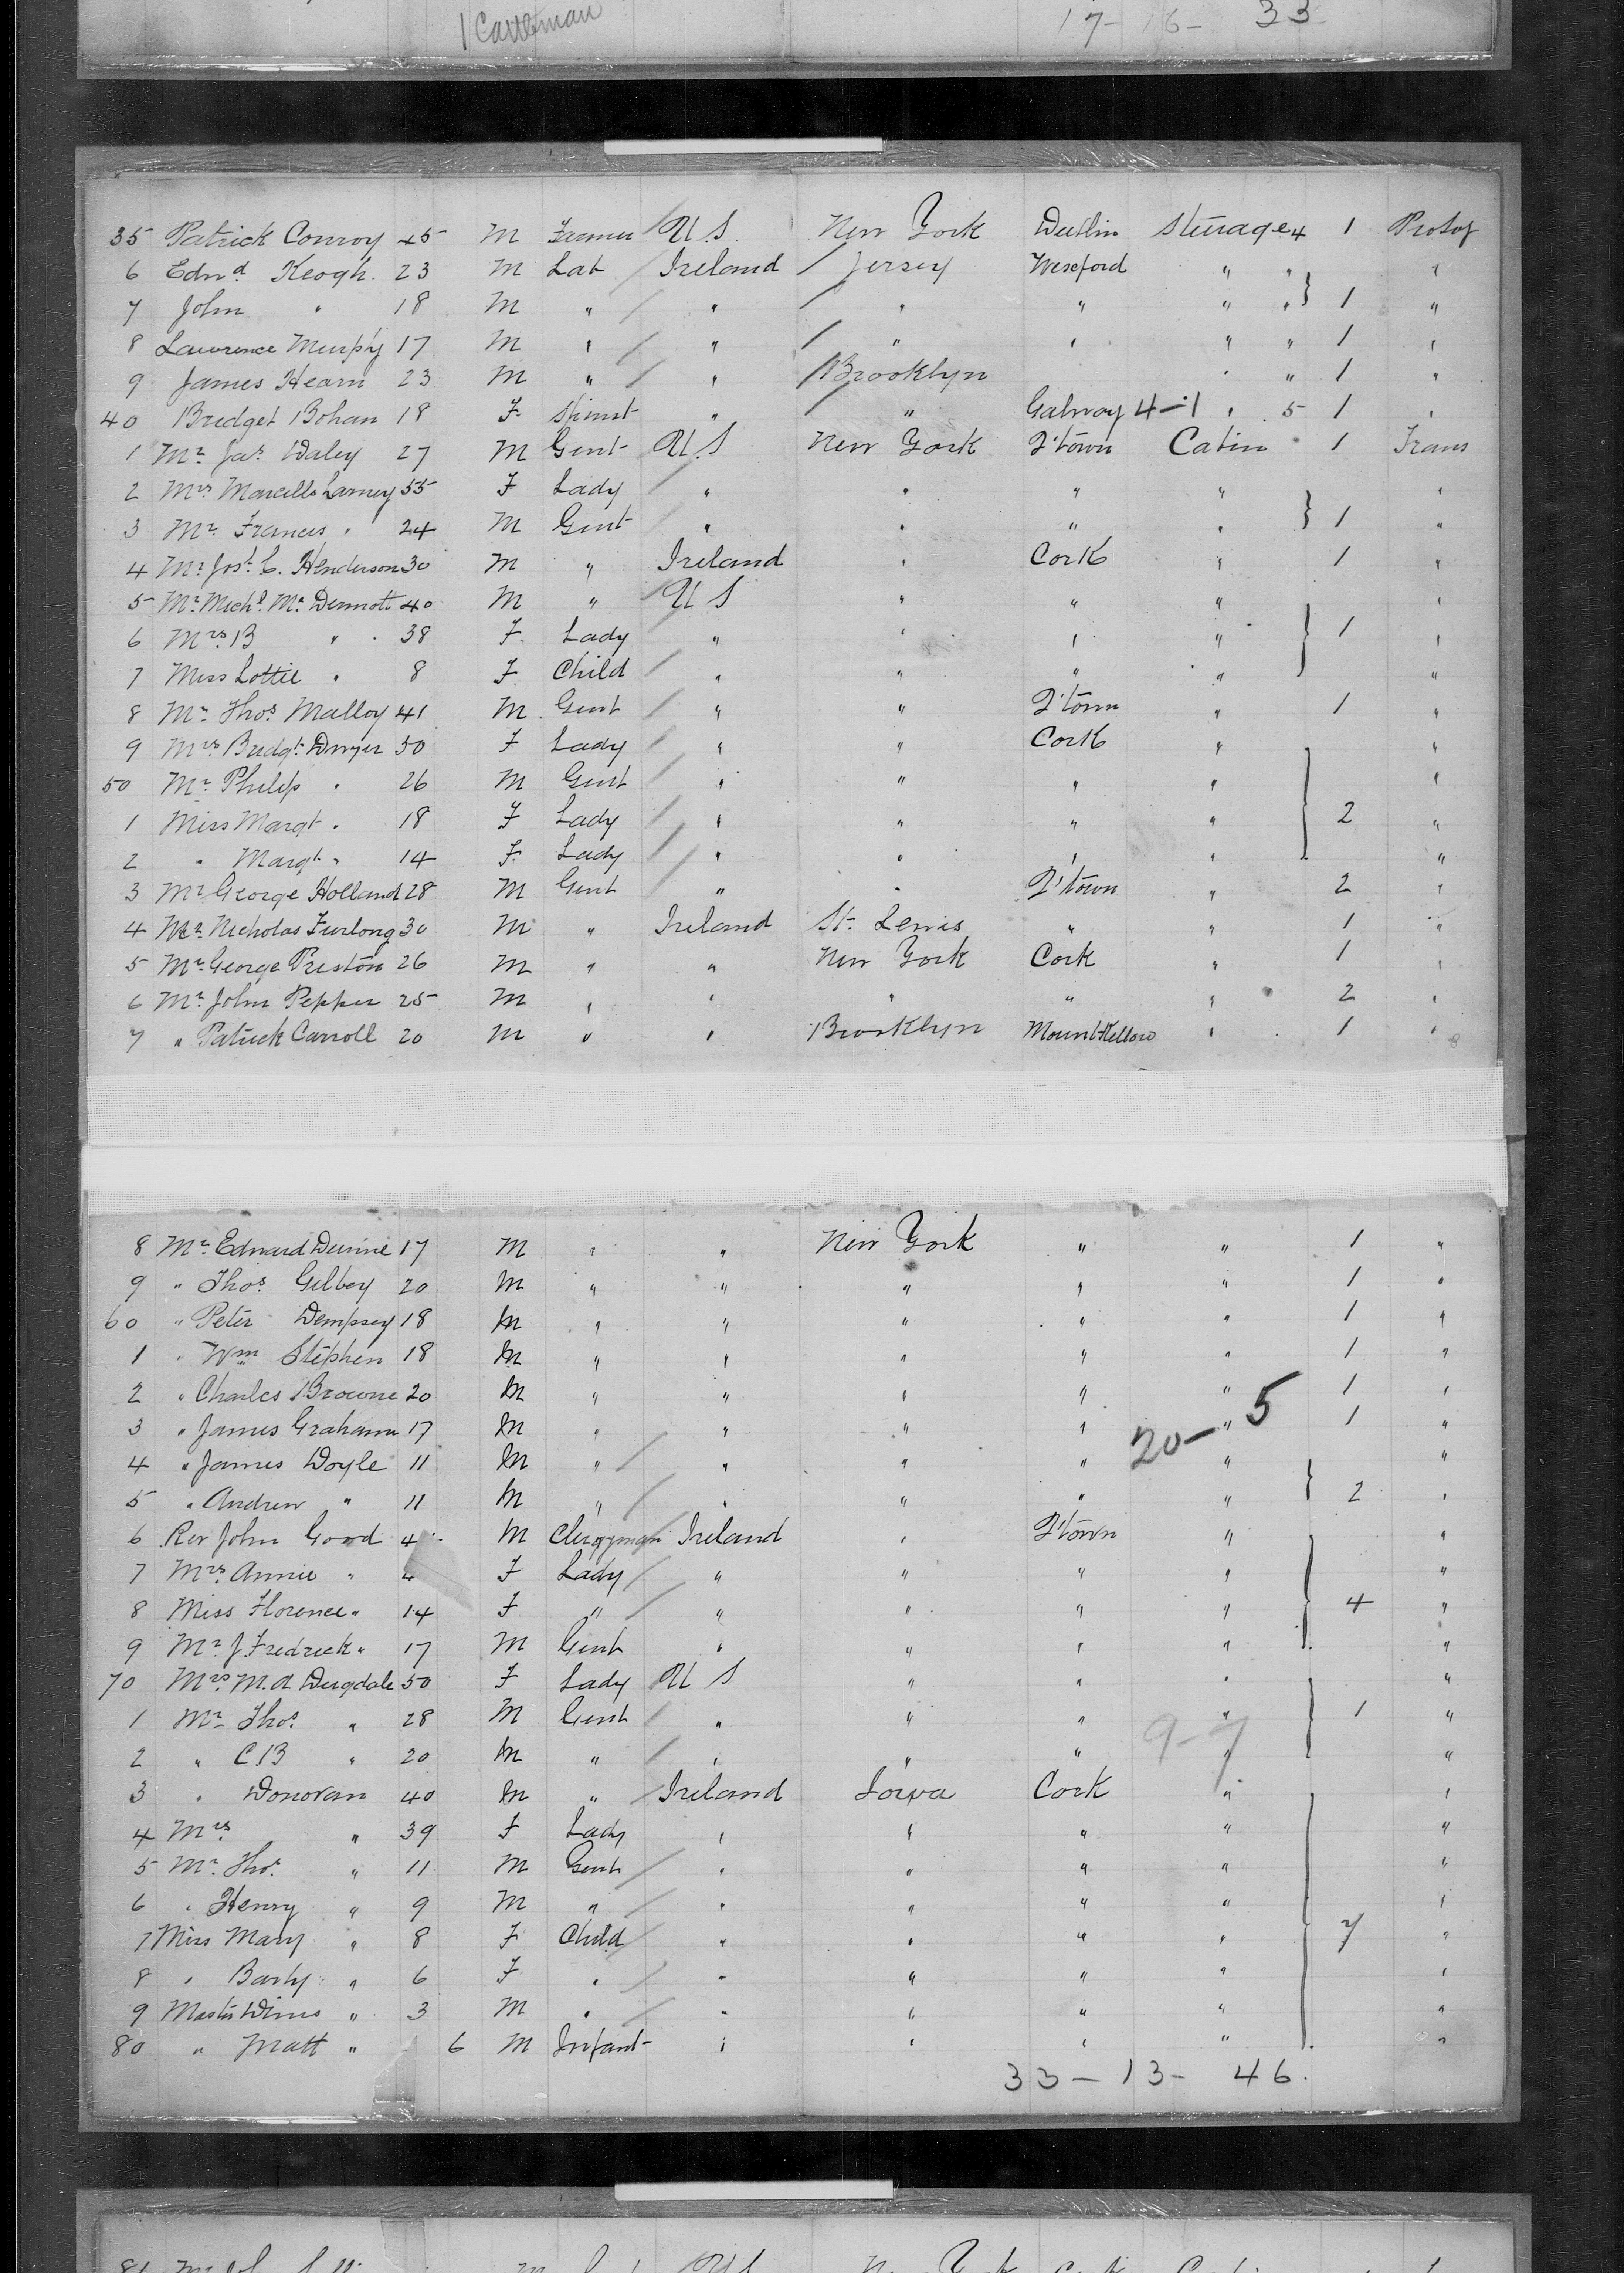 1 Cattleman 17- 16- 33
35 Patrick Conroy 45 M Farmer U.S. New York Dublin Steerage 4 1 Protsy
6 Edwd Keogh 23 M Lab Ireland Jersey Wexford " " "
7 John " 18 M " " " " " " } 1 "
8 Lawrence Murphy 17 M " " " " " " 1 "
9 James Hearn 23 M " " Brooklyn " " 1 "
40 Bridget Bohan 18 F Spinst " " Galway 4-1 " 5 1 "
1 Mr Jas Daley 27 M Gent U.S New York Q'town Cabin " 1 Trans
2 Mrs Marcella Larney 55 F Lady " " " " "
3 Mr Francis " 24 M Gent " " " " } 1 "
4 Mr Jost C. Henderson 30 M " Ireland " Cork " 1 "
5 Mr Michl McDermott 40 M " U S " " " "
6 Mrs B " 38 F Lady " " " " } 1 "
7 Miss Lottie " 8 F Child " " " " "
8 Mr Thos Malloy 41 M Gent " " Q'town " 1 "
9 Mrs Bridgt Dwyer 50 F Lady " " Cork " "
50 Mr Philip " 26 M Gent " " " " "
1 Miss Margt " 18 F Lady " " " " } 2 "
2 " Margt " 14 F Lady " " " " "
3 Mr George Holland 28 M Gent " " Q'town " 2 "
4 Mr Nicholas Furlong 30 M " Ireland St. Lewis " " 1 "
5 Mr George Preston 26 M " " New York Cork " 1 "
6 Mr John Pepper 25 M " " " " " 2 "
7 " Patrick Carroll 20 M " " Brooklyn " 1 "
8 Mr Edward Dunne 17 M " " New York " " 1 "
9 " Thos Gilbey 20 M " " " " " 1 "
60 " Peter Dempsey 18 M " " " " " 1 "
1 " Wm Stephen 18 M " " " " " 1 "
2 " Charles Browne 20 M " " " " " 1 "
3 " James Graham 17 M " " " " 20-5 " 1 "
4 " James Doyle 11 M " " " " " "
5 " Andrew " 11 M " " " " " } 2 "
6 Rev John Good 4 M Clergyman Ireland " Q'town " "
7 Mrs Annie " 4 F Lady " " " " "
8 Miss Florence " 14 F " " " " " } 4 "
9 Mr J. Fredrick " 17 M Gent " " " " "
70 Mrs M. A Dugdale 50 F Lady U S " " " "
1 Mr Thos " 28 M Gent " " " " } 1 "
2 " C B " 20 M " " " " 9-7 " "
3 " Donovan 40 M " Ireland Iowa Cork " "
4 Mrs " 39 F Lady " " " " "
5 Mr Thos " 11 M Gent " " " " "
6 " Henry " 9 M " " " " " "
7 Miss Mary " 8 F Child " " " " } 7 "
8 " " 6 F " " " " " "
9 Master " 3 M " " " " " "
80 " Matt " 6 M Infant " " " " "
33-13- 46.